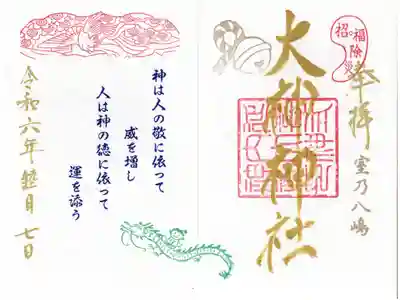 招福除災
奉拝
室乃八嶋
大神神社
神は人の敬に依って
威を増し
人は神の徳に依って
運を添う
令和六年 睦月 七日